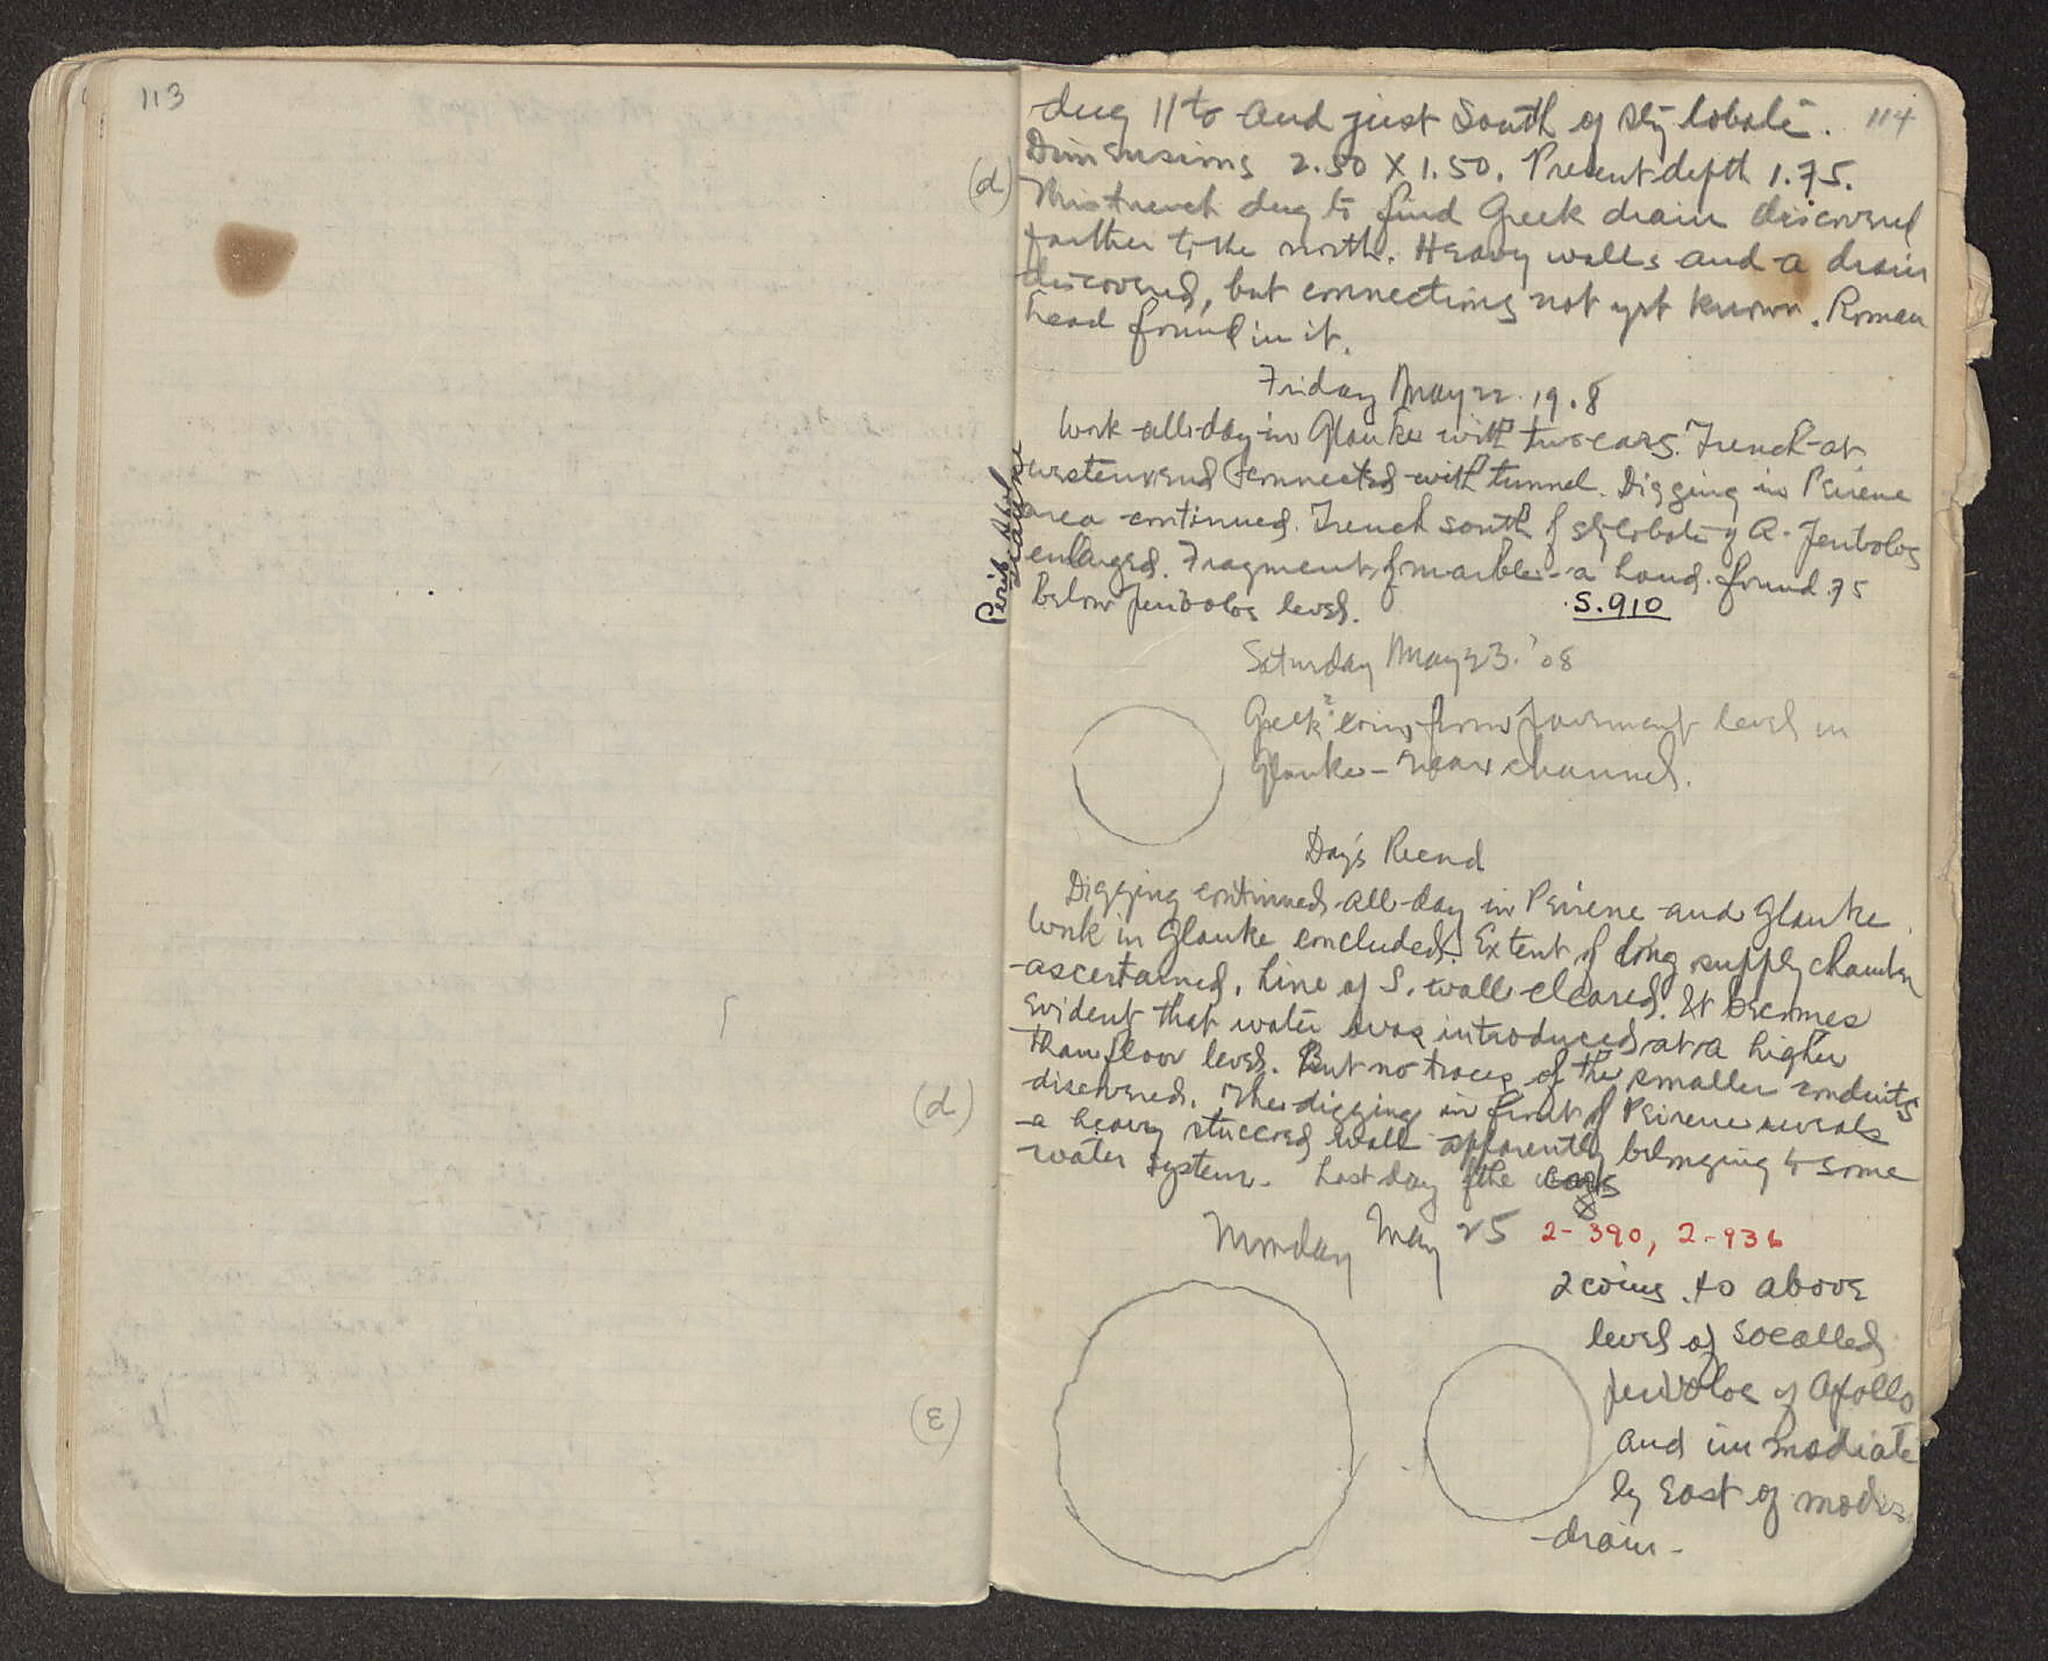 113
114
dug 11 to and just South of stylobate.
Dimensions 2.50 X 1.50. Present depth 1.75.
(d)
This trench dug to find Greek drain discovered
farther to the north. Heavy walls and a drain
discovered, but connections not yet known. Roman
head found in it.
Friday May 22. 19.8
Work all day in Glauke with two cars. Trench at
western end connected with tunnel. Digging in Peirene
area continued. Trench south of stylobate of A. Peribolos
enlarged. Fragment of marble - a hand. found .75
below peribolos level.
S.910
Perib. Apol
Glauke
Saturday May 23. '08
Greek? coin from pavement level in
Glauke - near channel.
Day's Record
Digging continued all day in Peirene and Glauke.
Work in Glauke concluded. Extent of long supply chamber
ascertained. Line of S. wall cleared. It becomes
evident that water was introduced at a higher
than floor level. But no traces of the smaller conduits
discovered. The digging in front of Peirene reveals
(d)
a heavy stuccoed wall apparently belonging to some
water system. Last day of the cars
Monday May 25 2-390, 2-936
2 coins. to above
level of socalled
peribolos of Apollo
(ε)
and immediate
ly East of modern
drain -